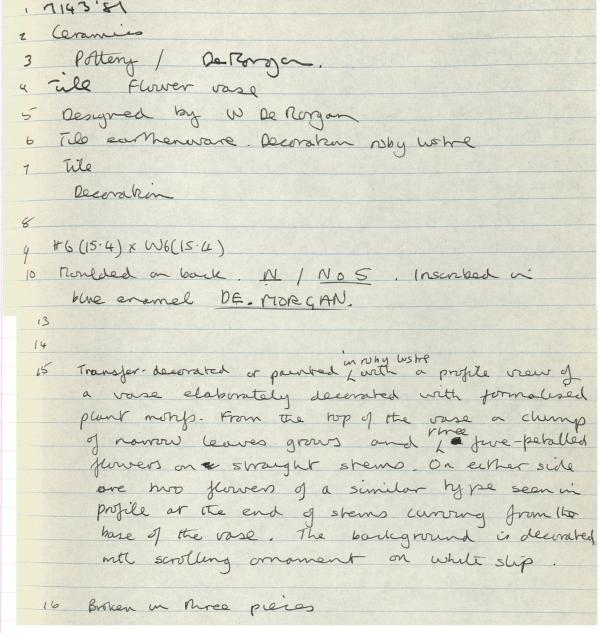 1 7143'81
2 Ceramics
3 Pottery / De Morgan.
4 Tile Flower vase
5 Designed by W De Morgan
6 Tile earthenware. Decoration ruby lustre
7 Tile
Decoration
8
9 H6 (15.4) x W6 (15.4)
10 Moulded on back. N / No S . Inscribed in
blue enamel DE. MORGAN.
13
14
in ruby lustre
15 Transfer-decorated or painted with a profile view of
a vase elaborately decorated with formalised
plant motifs. From the top of the vase a clump
three
of narrow leaves grows and five-petalled
flowers on straight stems. On either side
are two flowers of a similar type seen in
profile at the end of stems curving from the
base of the vase. The background is decorated
with scrolling ornament on white slip.
16 Broken in three pieces